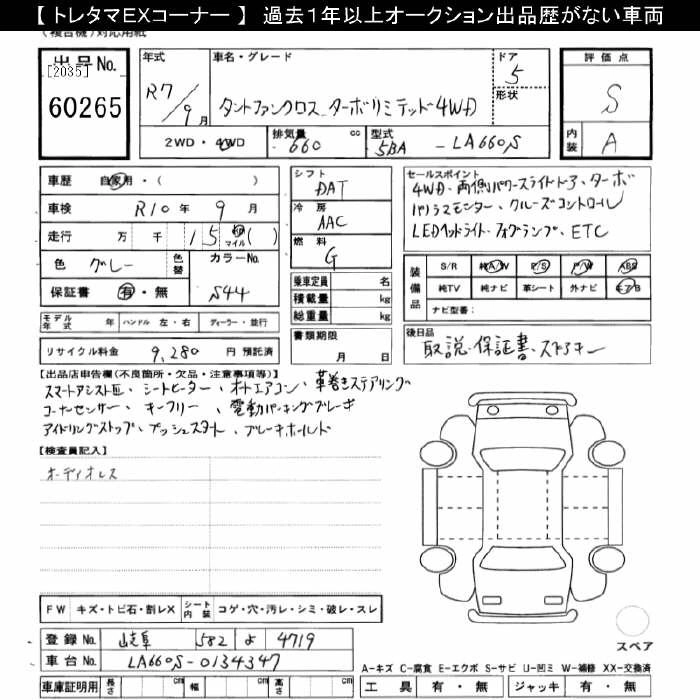 【 トレタマEXコーナー 】 過去１年以上オークション出品歴がない車両
出品No.
[2035]
60265
年式
R7/9月
車名・グレード
タントファンクロス ターボリミテッド4WD
ドア
5
形状
2WD・4WD
排気量
660 cc
型式
5BA - LA660S
評価点
S
内装
A
車歴 自家用・( )
車検 R10年 9月
走行 万 千 15 マイル ( )
色 グレー 色替
カラーNo.
S44
保証書 有・無
モデル年式 年 ハンドル 左・右 ディーラー・並行
リサイクル料金 9,280 円 預託済
シフト
DAT
冷房
AAC
燃料
G
乗車定員 名
積載量 kg
総重量 kg
書類期限
月 日
セールスポイント
4WD、両側パワースライドドア、ターボ
パノラマモニター、クルーズコントロール
LEDヘッドライト・フォグランプ、ETC
装備品
S/R 純A/W P/S P/W ABS
純TV 純ナビ 革シート 外ナビ エアB
ナビ型番:
後日品
取説・保証書・スペアキー
【出品店申告欄(不良箇所・欠品・注意事項等)】
スマートアシスト、シートヒーター、オートエアコン、革巻きステアリング
コーナーセンサー、キーフリー、電動パーキングブレーキ
アイドリングストップ、プッシュスタート、ブレーキホールド
【検査員記入】
オーディオレス
FW キズ・トビ石・割レX シート内装 コゲ・穴・汚レ・シミ・破レ・スレ
登録No. 岐阜 582 よ 4719
車台No. LA660S-0134347
車庫証明用 長さ cm 幅 cm 高さ cm
スペア
A-キズ C-腐食 E-エクボ S-サビ U-凹ミ W-補修 XX-交換済
工具 有・無 ジャッキ 有・無